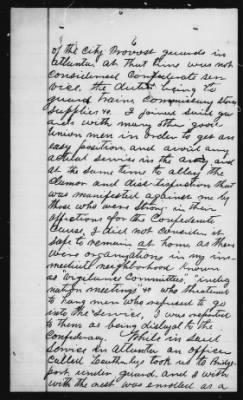 6
of the City Provost guards in
Atlanta, at that time were not
considered Confederate ser-
vice. the duties being to
guard trains, Commissary stores
Supplies &c. I joined said gu-
ards with many other good
Union men in order to get an
easy position and avoid any
actual service in the army, and
at the same time to allay the
clamor and dissatisfaction that
was manifested against me by
those who were strong in their
affections for the Confederate
cause, I did not consider it
safe to remain at home as there
were organizations in my im-
mediate neighborhood known
as "Vigilance Committees" "indig
nation meetings" &c who threatened
to hang men who refused to go
into the service, I was reported
to them as being disloyal to the
Confederacy. While in said
service in Atlanta an officer
called took us to Bridge-
port under guard, and I with
with the rest was enrolled as a